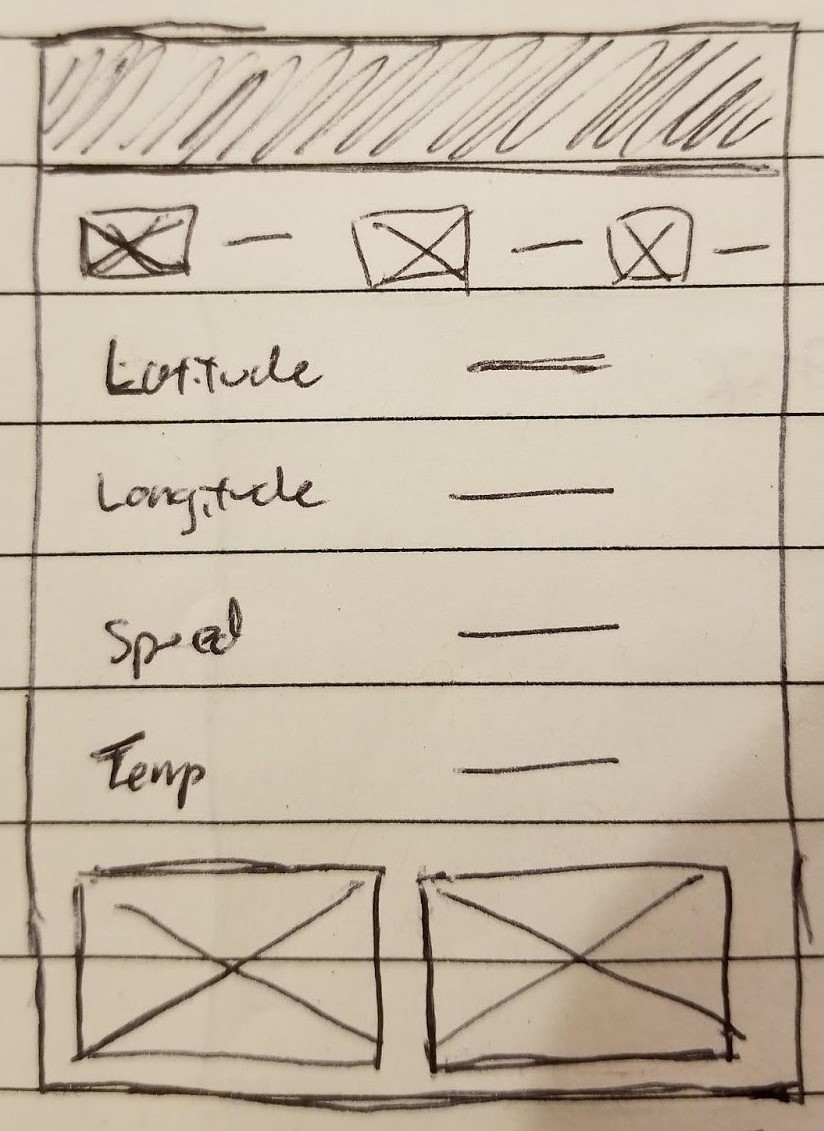 Latitude
Longitude
Speed
Temp